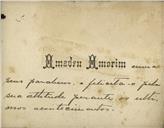 Amadeu Amorim envia
seus parabens e felicita-o pela
sua attitude perante os ulti-
mos acontecimentos.